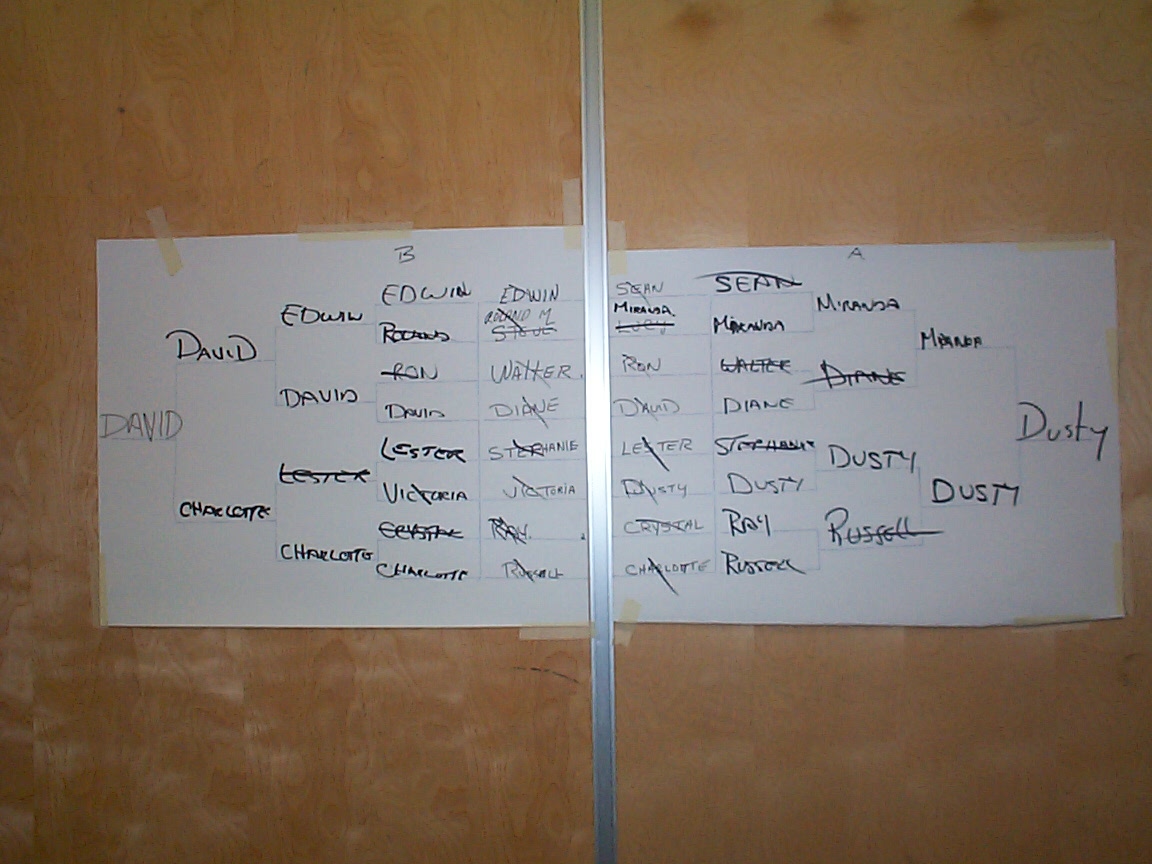 B
EDWIN
EDWIN
EDWIN
ROLAND
ROLAND M
STEVE
DAVID
RON
WALTER.
DAVID
DAVID
DIANE
DAVID
LESTER
STEPHANIE
LESTER
VICTORIA
VICTORIA
CHARLOTTE
CRYSTAL
RAY.
CHARLOTTE
CHARLOTTE
RUSSELL
A
SEAN
SEAN
MIRANDA
MIRANDA.
LUCY
MIRANDA
MIRANDA
RON
WALTER
DIANE
DAVID
DIANE
Dusty
LESTER
STEPHANIE
DUSTY
DUSTY
DUSTY
DUSTY
CRYSTAL
RAY
RUSSELL
CHARLOTTE
RUSSELL